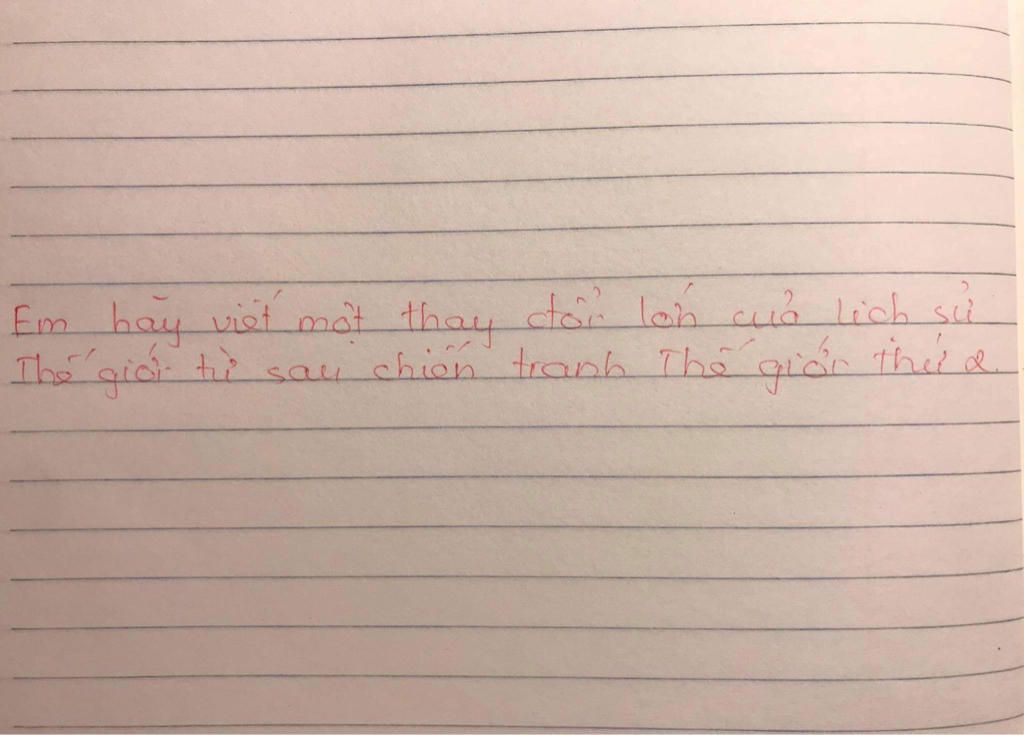 Em hãy viết một thay đổi lớn của lịch sử
Thế giới từ sau chiến tranh Thế giới thứ 2.